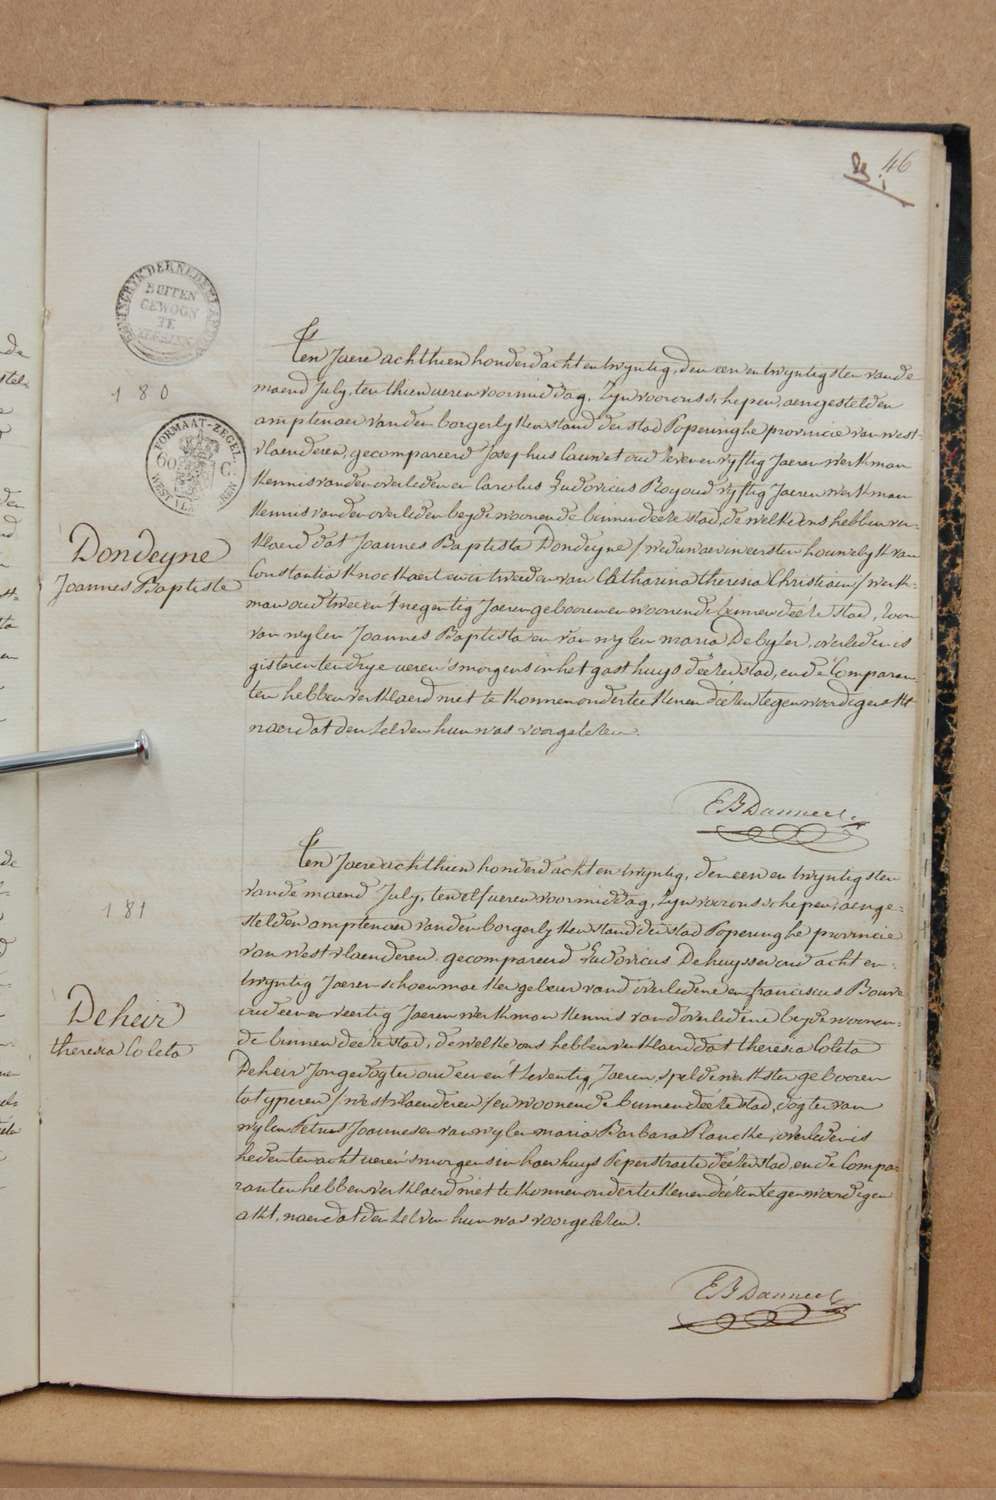 46
KONINGRYK DER NEDERLANDEN
BUITEN
GEWOON
TE
180
FORMAAT-ZEGEL
60 C.
WEST VLAANDEREN
Dondeyne
Joannes Baptiste
Ten Jaere achthien honderd acht en twyntig, den een en twyntigsten van de
maend July, ten thien ueren voormiddag, Zyn voor ons schepen, aengestelden
amptenaer van den borgerlyken stand der stad Poperinghe provincie van west-
vlaenderen, gecompareerd Josephus Cauwet oud seven en vyftig Jaeren werkman
kennis van den overleden en Carolus Ludovicus Roy oud vyftig Jaeren werkman
kennis van den overleden beyde woonende binnen deeze stad, de welke ons hebben ver-
klaerd dat Joannes Baptista Dondeyne / weduwaer in eersten houwelyk van
Constantia Knockaert en in tweeden van Catharina Theresia Christiaen / werk-
man oud twee en 't negentig Jaeren gebooren en woonende binnen deeze stad, Zoon
van wylen Joannes Baptista en van wylen maria Debyser, overleden is
gisteren ten drye ueren 's morgens in het gasthuys deezer stad, en de Comparan-
ten hebben verklaerd niet te konnen onderteekenen deezen tegenwoordigen akt
naer dat den zelven hun was voorgelezen.
EB Danneel
181
Deheir
theresia Coleta
Ten Jaere achthien honderd acht en twyntig, den een en twyntigsten
van de maend July, ten elf ueren voormiddag, Zyn voor ons schepen, aenge-
stelden amptenaer van den borgerlyken stand der stad Poperinghe provincie
van westvlaenderen gecompareerd Ludovicus Dehuysser oud acht en
twyntig Jaeren schoenmaeker gebeur van d'overledene en franciscus Bouve
oud een en veertig Jaeren werkman kennis van d'overledene beyde woonen-
de binnen deeze stad, de welke ons hebben verklaerd dat theresia Coleta
Deheir Jonge dogter oud een en 't seventig Jaeren, speldewerkster gebooren
tot yperen / westvlaenderen / en woonende binnen deeze stad, dogter van
wylen Petrus Joannes en van wylen maria Barbara Plancke, overleden is
heden ten acht ueren 's morgens in haer huys Peperstraete deezer stad, en de Compa-
ranten hebben verklaerd niet te konnen onderteekenen deezen tegenwoordigen
akt, naer dat den zelven hun was voorgelezen.
EB Danneel